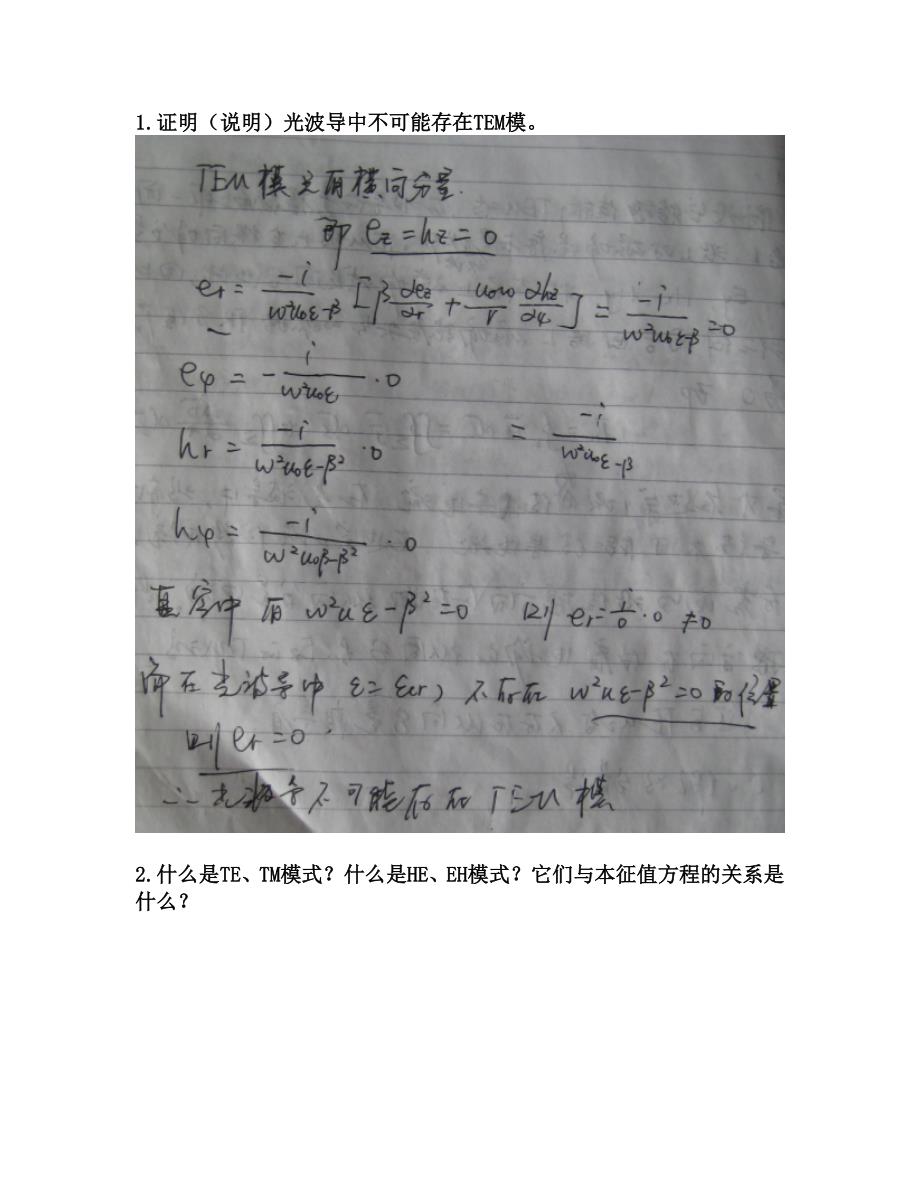 1.证明（说明）光波导中不可能存在TEM模。
TEM模只有横向分量.
即 ez=hz=0
er = -i/(ω²u₀ε-β) [β dez/dr + u₀ω/r dhz/dφ] = -i/(ω²u₀ε-β) =0
eφ = - i/(ω²u₀ε) ·0
= -i/(ω²u₀ε-β)
hr = -i/(ω²u₀ε-β²) ·0
hφ = - -i/(ω²u₀β-β²) ·0
真空中 有 ω²uε-β²=0 则 er=i/0·0 ≠0
而在光波导中 ε=ε(r), 不存在 ω²uε-β²=0 的位置
则 er=0.
∴ 光波导不可能存在TEM模
2.什么是TE、TM模式？什么是HE、EH模式？它们与本征值方程的关系是
什么？